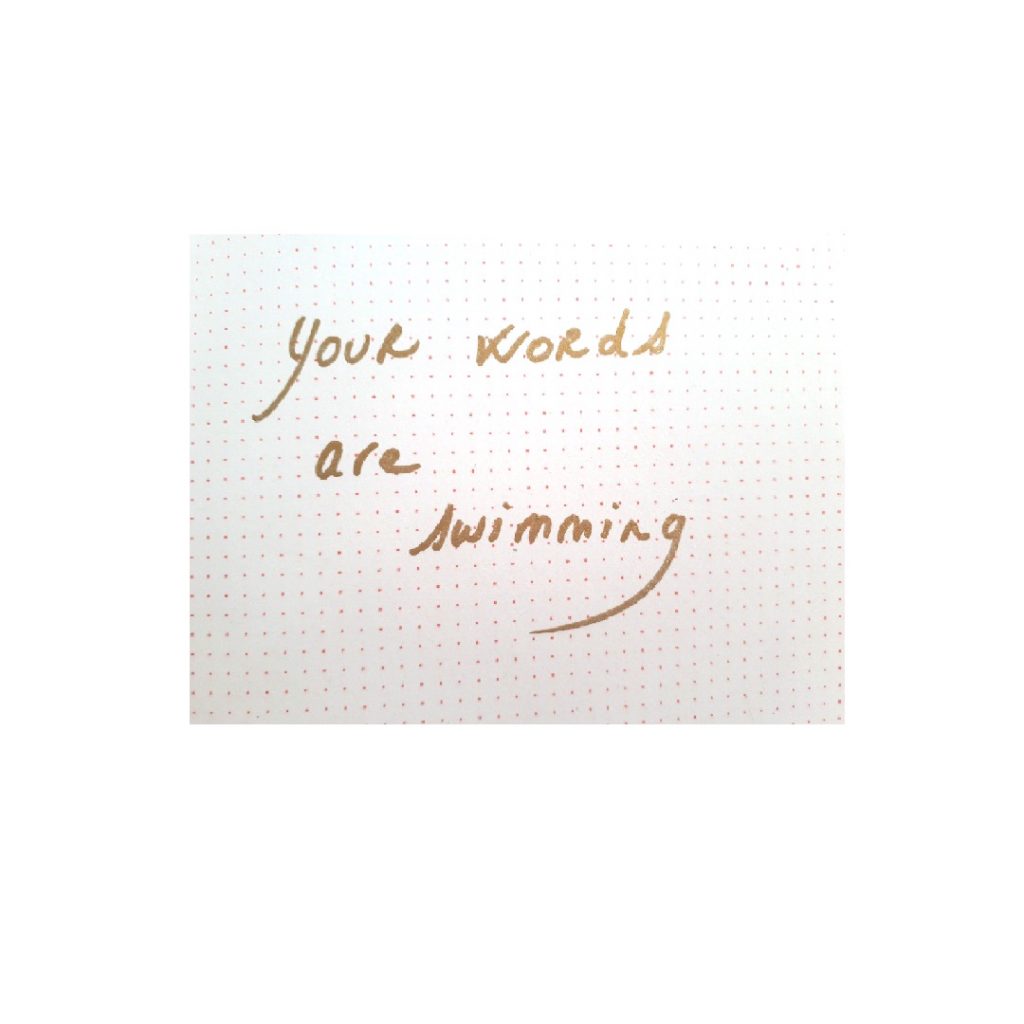 your words
are
swimming